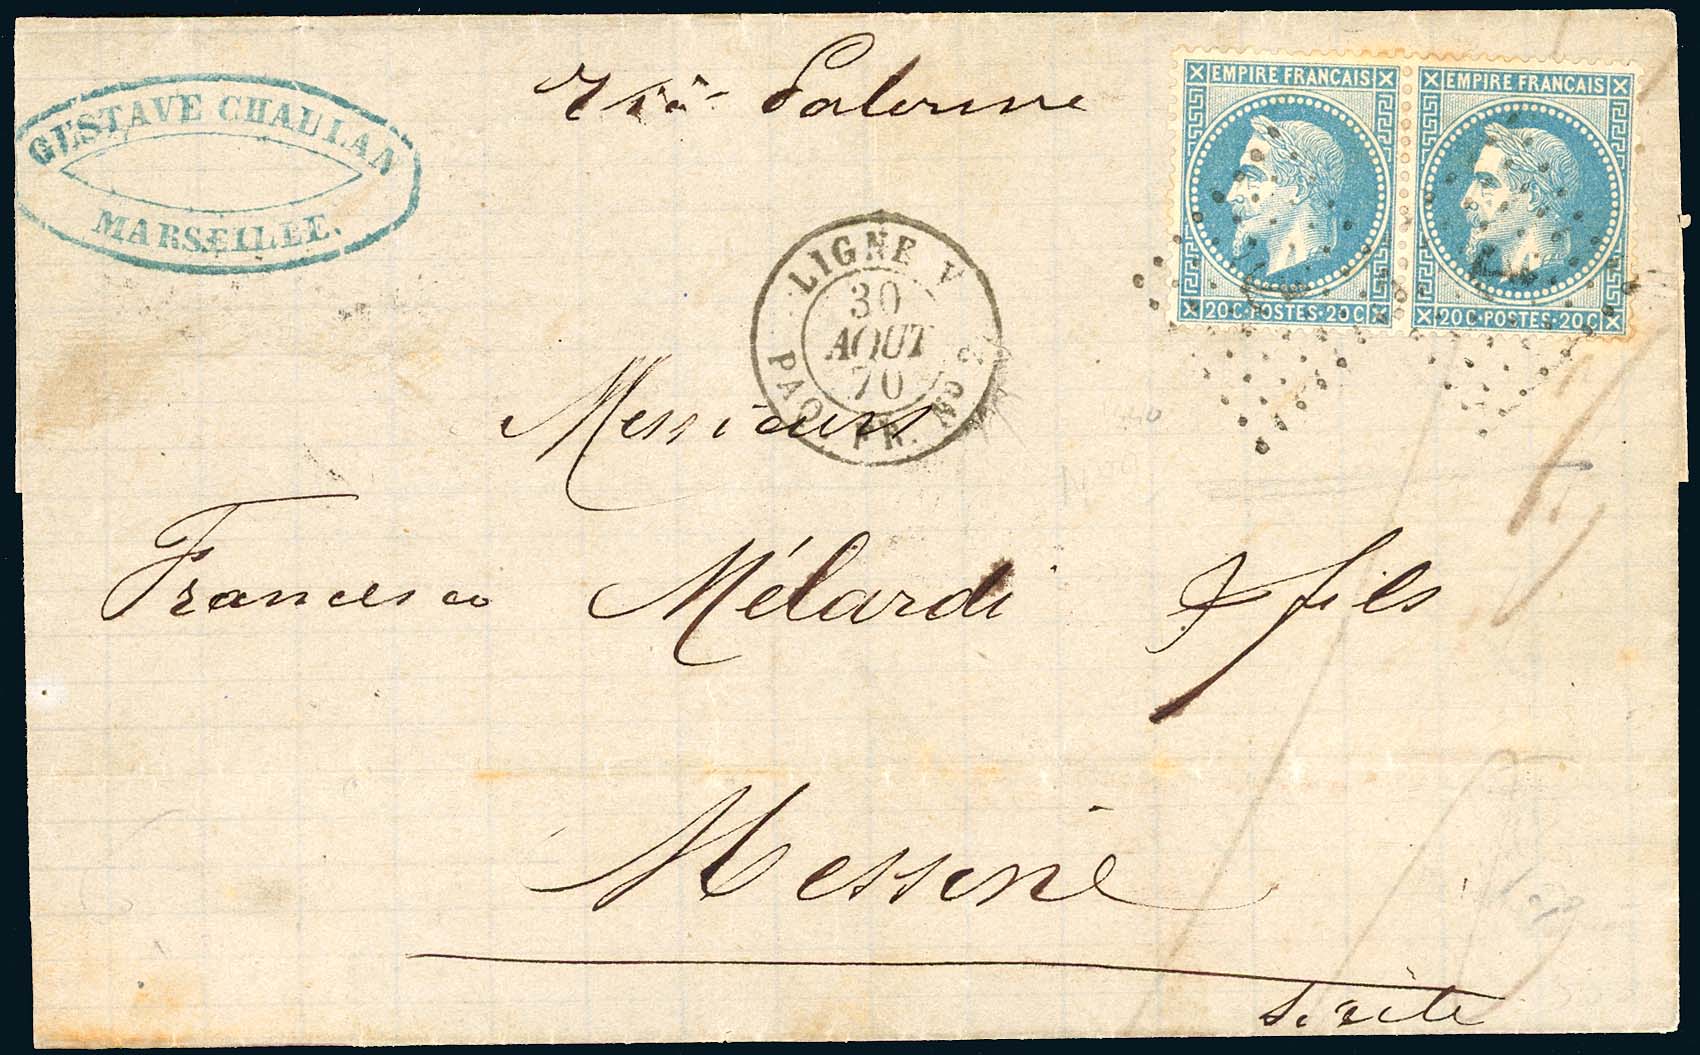 Via Palerme
GUSTAVE CHAULAN
MARSEILLE.
EMPIRE FRANCAIS
20C·POSTES·20C
EMPIRE FRANCAIS
20C·POSTES·20C
LIGNE V
30
AOUT
70
PAQ. FR. No 2
Messieurs
Francesco Mélardi & fils
Messine
Sicile